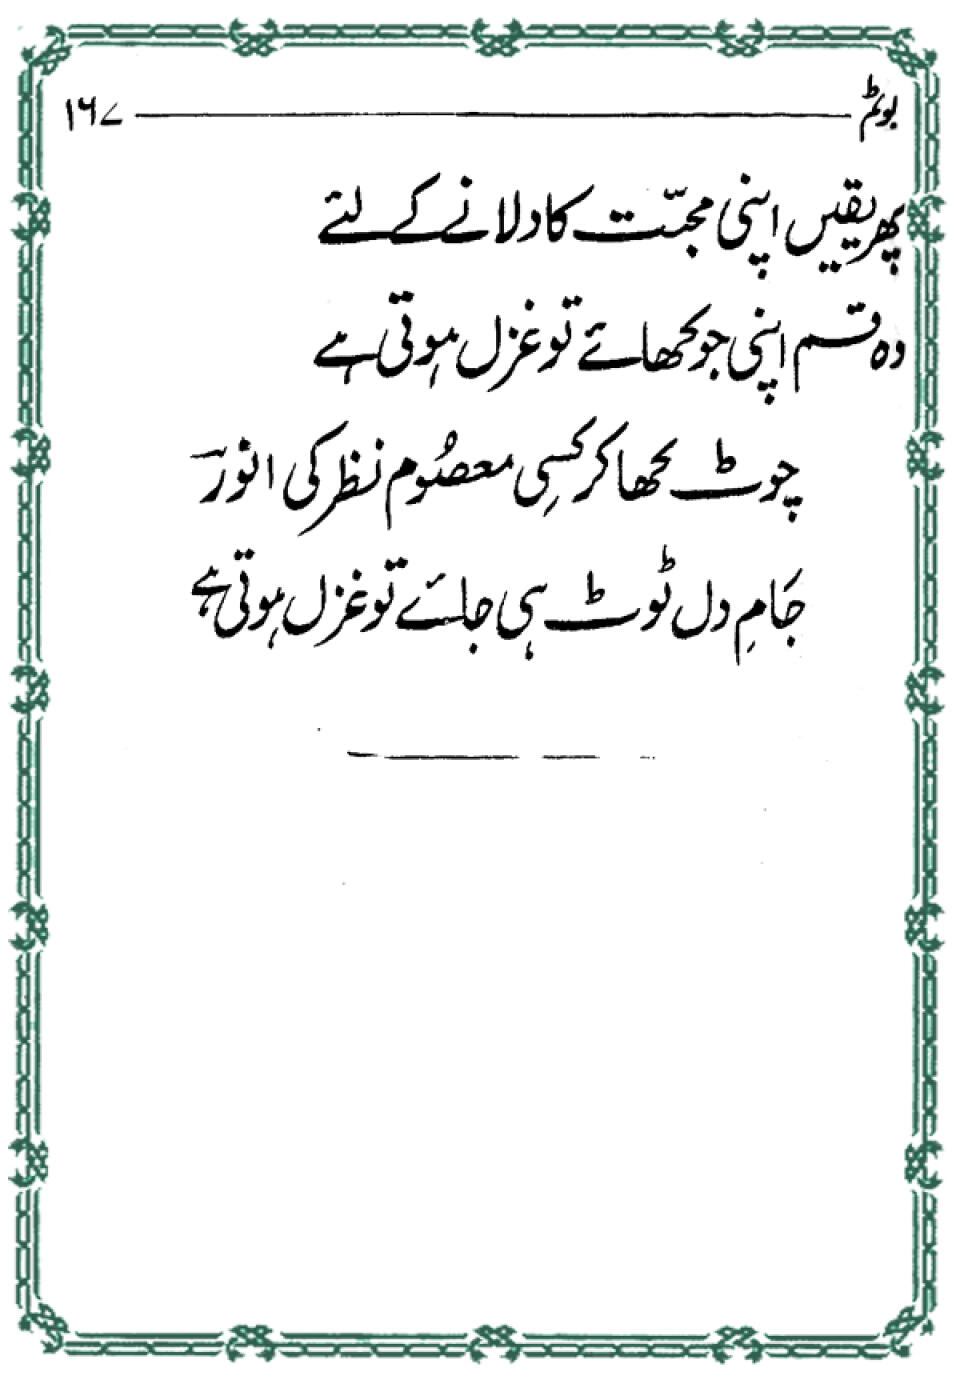 بوئم ۱۶۷
پھر یقیں اپنی محبّت کا دلانے کے لئے
وہ قسم اپنی جو کھائے تو غزل ہوتی ہے
چوٹ کھا کر کسِی معصُوم نظر کی انورؔ
جَامِ دل ٹوٹ ہی جائے تو غزل ہوتی ہے